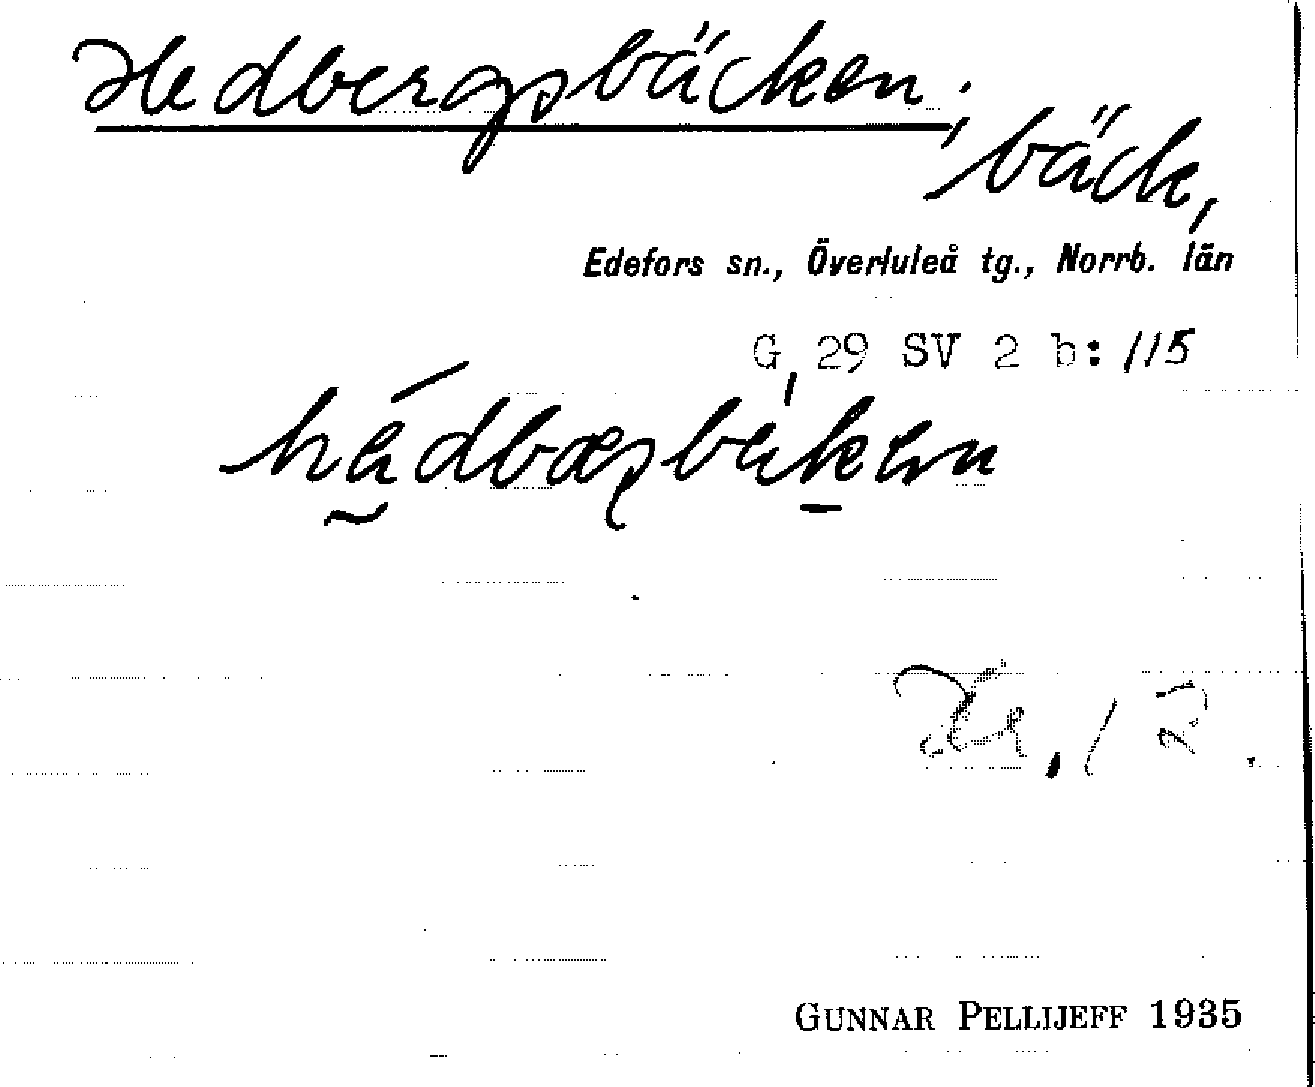 Hedbergsbäcken;
bäck,
Edefors sn., Överluleå tg., Norrb. län
G 29 SV 2 b: 115
GUNNAR PELLIJEFF 1935